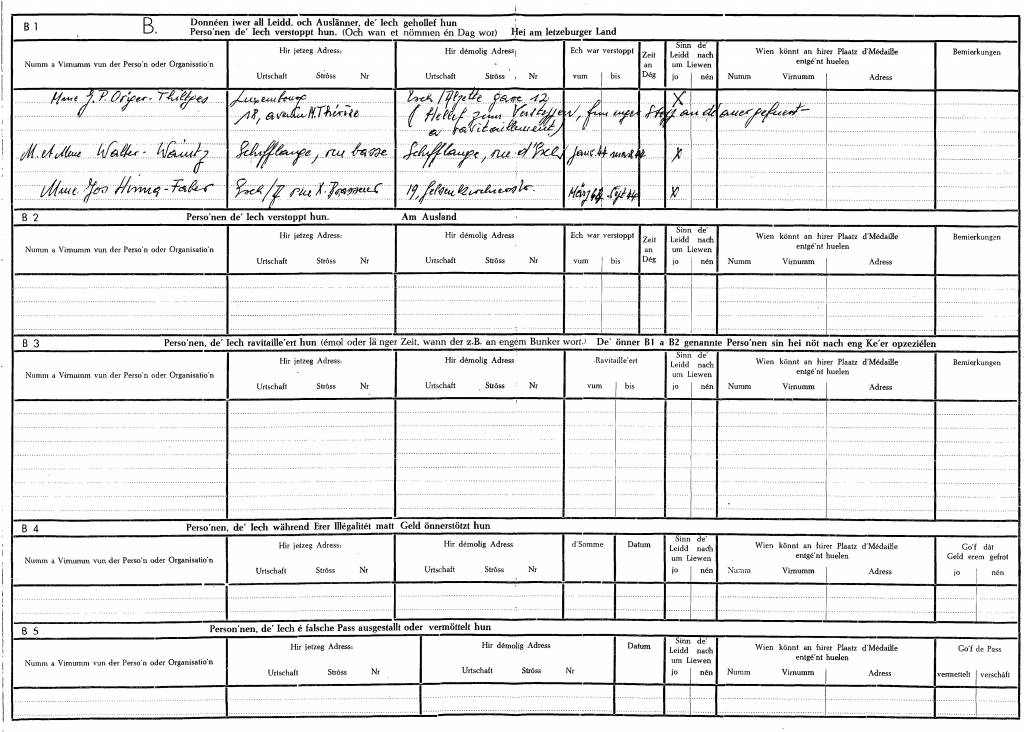 B 1
B.
Donnéen iwer all Leidd, och Auslänner, de' Iech gehollef hun
Perso'nen de' Iech verstoppt hun. (Och wan et nömmen én Dag wor) Hei am letzeburger Land
Numm a Virnumm vun der Perso'n oder Organisatio'n
Hir jetzeg Adress:
Urtschaft Ströss Nr
Hir démolig Adress:
Urtschaft Ströss Nr
Ech war verstoppt
vum bis
Zeit an Dég
Sinn de' Leidd nach um Liewen
jo nén
Wien könnt an hirer Plaatz d'Médaille entgé'nt huelen
Numm Virnumm Adress
Bemierkungen
Mme J.P. Origer-Thiltges
Luxembourg
18, avenue M. Thérèse
Esch/Alzette gare 12
(Hellef zum Verstoppen,
a ravitaillement)
X
M. et Mme Walter-Wainitz
Schifflange, rue basse
Schifflange, rue d'Esch
X
Mme Jos Hinna-Faber
Esch/A rue X. Brasseur
19,
März Sept 44
X
B 2
Perso'nen de' Iech verstoppt hun. Am Ausland
Numm a Virnumm vun der Perso'n oder Organisatio'n
Hir jetzeg Adress:
Urtschaft Ströss Nr
Hir démolig Adress
Urtschaft Ströss Nr
Ech war verstoppt
vum bis
Zeit an Dég
Sinn de' Leidd nach um Liewen
jo nén
Wien könnt an hirer Plaatz d'Médaille entgé'nt huelen
Numm Virnumm Adress
Bemierkungen
B 3
Perso'nen, de' Iech ravitaille'ert hun (émol oder länger Zeit, wann der z.B. an engem Bunker wort.) De' önner B1 a B2 genannte Perso'nen sin hei nöt nach eng Ke'er opzeziélen
Numm a Virnumm vun der Perso'n oder Organisatio'n
Hir jetzeg Adress:
Urtschaft Ströss Nr
Hir démolig Adress
Urtschaft Ströss Nr
Ravitaille'ert
vum bis
Sinn de' Leidd nach um Liewen
jo nén
Wien könnt an hirer Plaatz d'Médaille entgé'nt huelen
Numm Virnumm Adress
Bemierkungen
B 4
Perso'nen, de' Iech während Erer Illégalitét matt Geld önnerstötzt hun
Numm a Virnumm vun der Perso'n oder Organisatio'n
Hir jetzeg Adress:
Urtschaft Ströss Nr
Hir démolig Adress
Urtschaft Ströss Nr
d'Somme
Datum
Sinn de' Leidd nach um Liewen
jo nén
Wien könnt an hirer Plaatz d'Médaille entgé'nt huelen
Numm Virnumm Adress
Go'f dât Geld erem gefrot
jo nén
B 5
Person'nen, de' Iech é falsche Pass ausgestallt oder vermöttelt hun
Numm a Virnumm vun der Perso'n oder Organisatio'n
Hir jetzeg Adress:
Urtschaft Ströss Nr
Hir démolig Adress
Urtschaft Ströss Nr
Datum
Sinn de' Leidd nach um Liewen
jo nén
Wien könnt an hirer Plaatz d'Médaille entgé'nt huelen
Numm Virnumm Adress
Go'f de Pass
vermettelt verschâft